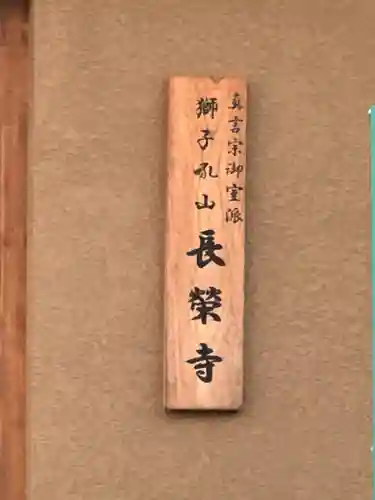 真言宗御室派
獅子吼山
長榮寺